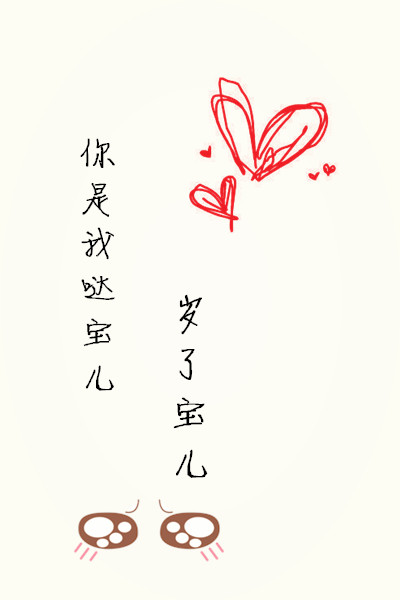 你是我哒宝儿
岁了宝儿